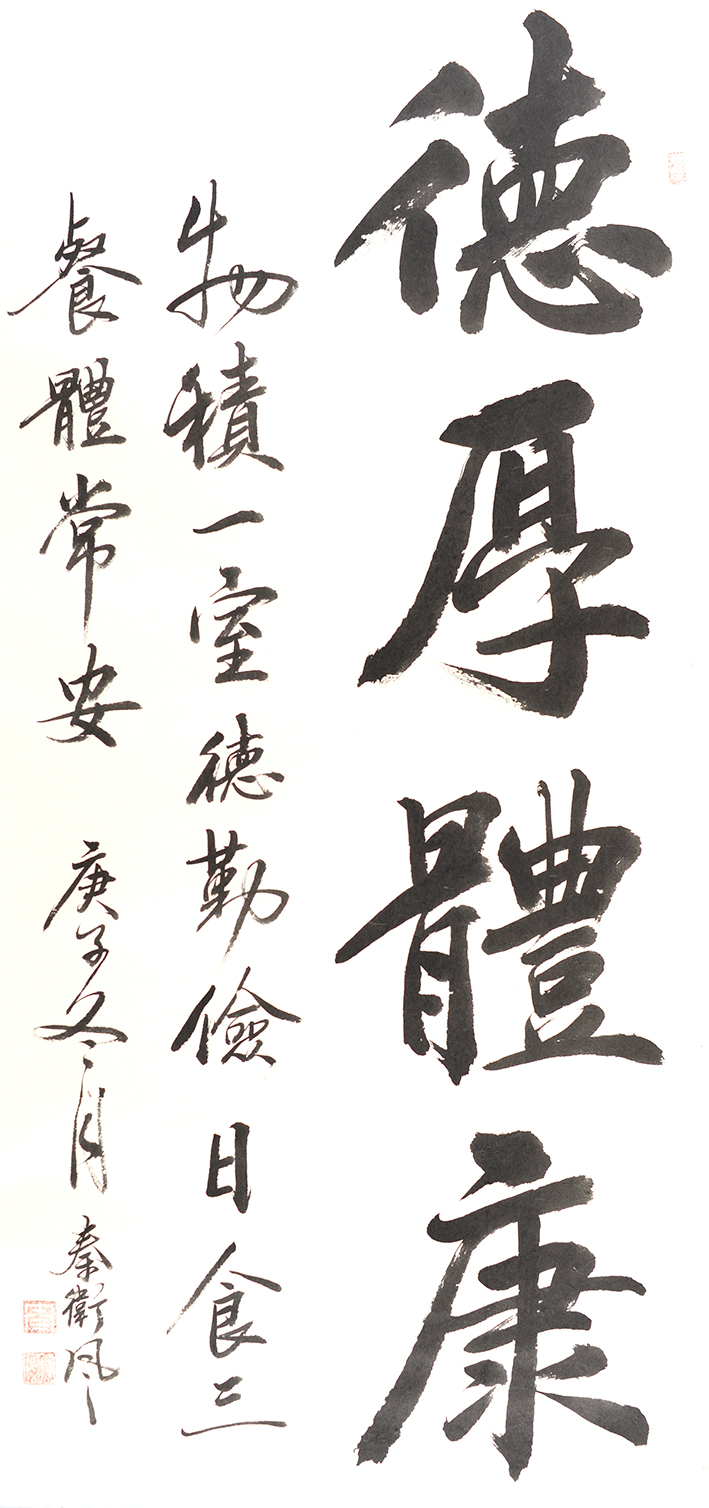 德厚體康
物積一室德勤儉日食三
餐體常安 庚子冬月 秦衛風